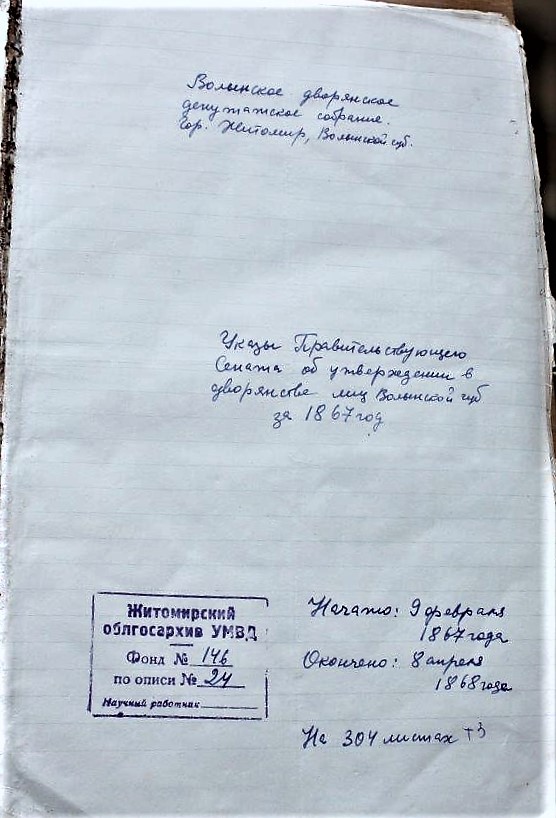 Волынское дворянское
депутатское собрание.
Гор. Житомир, Волынской губ.
Указы Правительствующего
Сената об утверждении в
дворянстве лиц Волынской губ
за 1867 год
Житомирский
облгосархив УМВД
Фонд № 146
по описи № 24
Научный работник
Начато: 9 февраля
1867 года
Окончено: 8 апреля
1868 года
На 304 листах +3